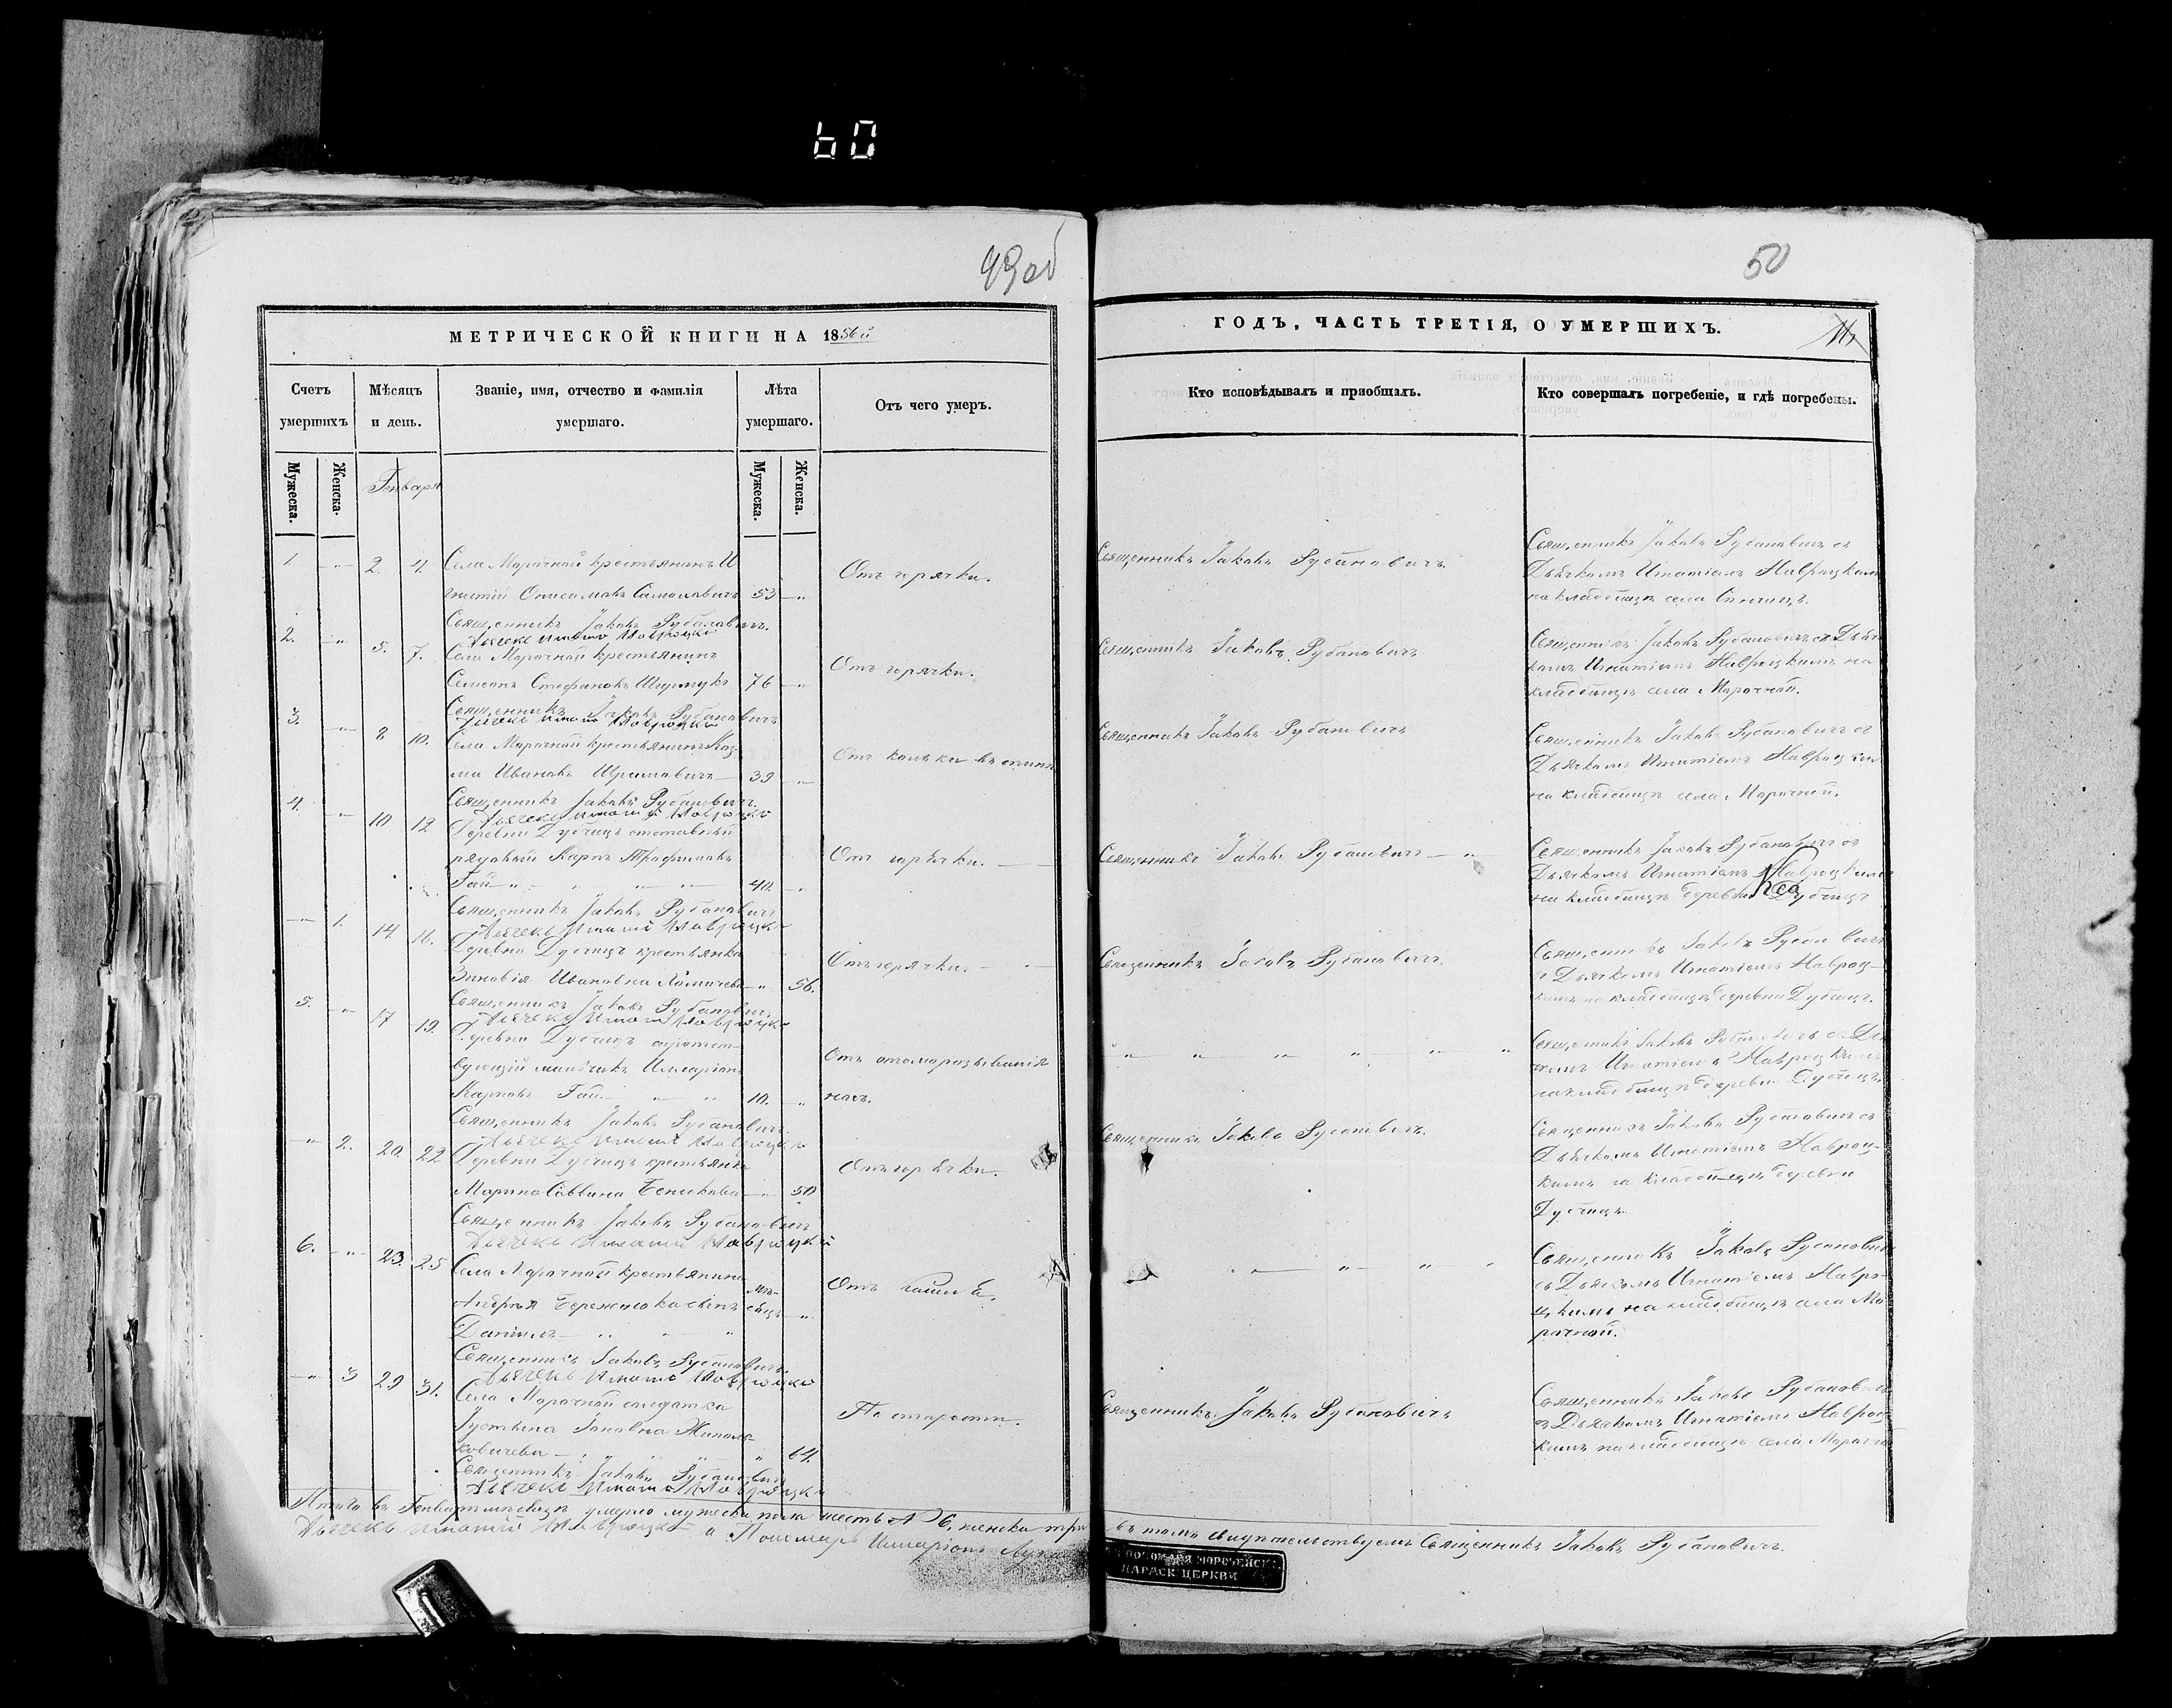 60
49об
50
МЕТРИЧЕСКОЙ КНИГИ НА 1856й
ГОДЪ, ЧАСТЬ ТРЕТІЯ, О УМЕРШИХЪ.
11,
Счетъ умершихъ
Мѣсяцъ и день.
Званіе, имя, отчество и фамилія умершаго.
Лѣта умершаго.
Отъ чего умеръ.
Кто исповѣдывалъ и пріобщалъ.
Кто совершалъ погребеніе, и гдѣ погребены.
Мужеска.
Женска.
Генваря
Мужеска.
Женска.
1. -"- 2. 4. Села Морочной крестьянинъ И
гнатій Онисимовъ 53 -"-
Отъ горячки.
Священникъ Іаковъ Рубановичъ.
Священникъ Іаковъ Рубановичъ съ
Дьячкомъ Игнатіемъ Навроцкимъ
на кладбищѣ села
Священникъ Іаковъ Рубановичъ.
Дьячекъ Игнатій Навроцкій
2. -"- 5. 7. Села Морочной крестьянинъ
Семенъ Стефановъ 76 -"-
Отъ горячки.
Священникъ Іаковъ Рубановичъ
Священникъ Іаковъ Рубановичъ съ Дьяч
комъ Игнатіемъ Навроцкимъ на
кладбищѣ села Морочной.
Священникъ Іаковъ Рубановичъ
Дьячекъ Игнатій Навроцкій
3. -"- 8 10. Села Морочной крестьянинъ Коз
ма Ивановъ Шрамовичъ 39 -"-
Отъ
Священникъ Іаковъ Рубановичъ
Священникъ Іаковъ Рубановичъ съ
Дьячкомъ Игнатіемъ Навроцким
на кладбищѣ села Морочной.
Священникъ Іаковъ Рубановичъ.
Дьячекъ Игнатій Навроцкій
4. -"- 10 12 Деревни Дубчицъ отставный
рядовый Карпъ Трофимовъ
Гай 40. -"-
Отъ горячки.
Священникъ Іаковъ Рубановичъ
Священникъ Іаковъ Рубановичъ съ
Дьячкомъ Игнатіемъ Навроцкимъ
на кладбищѣ деревни Дубчицъ
Священникъ Іаковъ Рубановичъ
Дьячекъ Игнатій Навроцкій
-"- 1. 14 16. Деревни Дубчицъ крестьянка
Зиновія Ивановна -"- 56.
Отъ горячки.
Священникъ Іаковъ Рубановичъ
Священникъ Іаковъ Рубановичъ
съ Дьячкомъ Игнатіемъ Навроц-
кимъ на кладбищѣ деревни Дубчицъ.
Священникъ Іаковъ Рубановичъ
Дьячекъ Игнатій Навроцкій
5. -"- 17 19. Деревни Дубчицъ сиротст-
вующій мальчикъ Илларіонъ
Карповъ Гай 10. -"-
Отъ отмораживанія
ногъ.
Священникъ Іаковъ Рубановичъ съ Дьяч
комъ Игнатіемъ Навроцкимъ
на кладбищѣ деревни Дубчицъ.
Священникъ Іаковъ Рубановичъ
Дьячекъ Игнатій Навроцкій
-"- 2. 20. 22 Деревни Дубчицъ крестьянка
Марина Саввина -"- 50
Отъ горячки.
Священникъ Іаковъ Рубановичъ.
Священникъ Іаковъ Рубановичъ съ
Дьячкомъ Игнатіемъ Навроц-
кимъ на кладбищѣ деревни
Дубчицъ
Священникъ Іаковъ Рубановичъ
Дьячекъ Игнатій Навроцкій
6. -"- 23. 25 Села Морочной крестьянина
Андрея сынъ мѣ-
сяцъ -"-
Даніилъ
Отъ кашля.
Священникъ Іаковъ Рубановичъ
съ Дьячкомъ Игнатіемъ Навро-
цкимъ на кладбищѣ села Мо
рочной.
Священникъ Іаковъ Рубановичъ
Дьячекъ Игнатій Навроцкій
-"- 3 29 31. Села Морочной солдатка
Іустина
ковичева " 64.
По старости.
Священникъ Іаковъ Рубановичъ
Священникъ Іаковъ Рубановичъ
съ Дьячкомъ Игнатіемъ Навроц
кимъ на кладбищѣ села Морочной
Священникъ Іаковъ Рубановичъ
Дьячекъ Игнатій Навроцкій
Итого въ Генварѣ мѣсяцѣ умерло мужеска пола шесть № 6, женска три въ томъ свидѣтельствуемъ Священникъ Іаковъ Рубановичъ.
Дьячекъ Игнатій Навроцкій и Пономарь Илларіонъ
ПАРАСК ЦЕРКВИ